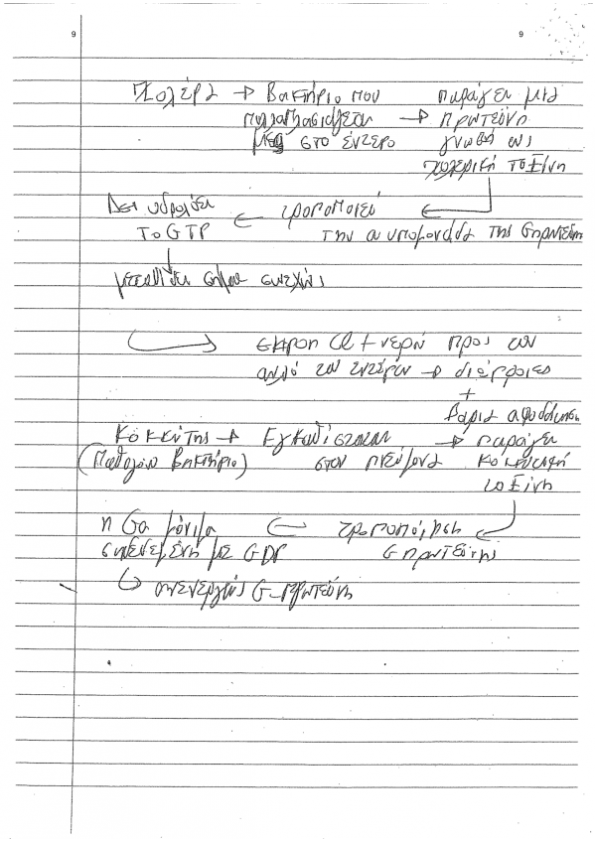 9 9
Χολέρα → Βακτήριο που παράγει μια
πολλαπλασιάζεται → πρωτεΐνη
μες στο έντερο γνωστή ως
χολερική τοξίνη
Δεν υδρολύει ← τροποποιεί ←
το GTP την α υπομονάδα της G πρωτεΐνης
μεταδίδει σήμα συνεχώς
→ εκροή Cl + νερού προς τον
αυλό του εντέρου → διάρροιες
+
βαριά αφυδάτωση
Κοκκύτης → Εγκαθίσταται → παράγει
(Παθογόνο βακτήριο) στον πνεύμονα κοκκυτική
τοξίνη
η Gα μόνιμα ← τροποποίηση ←
συνδεμένη με GDP G πρωτεΐνης
↳ ανενεργός G-πρωτεΐνη